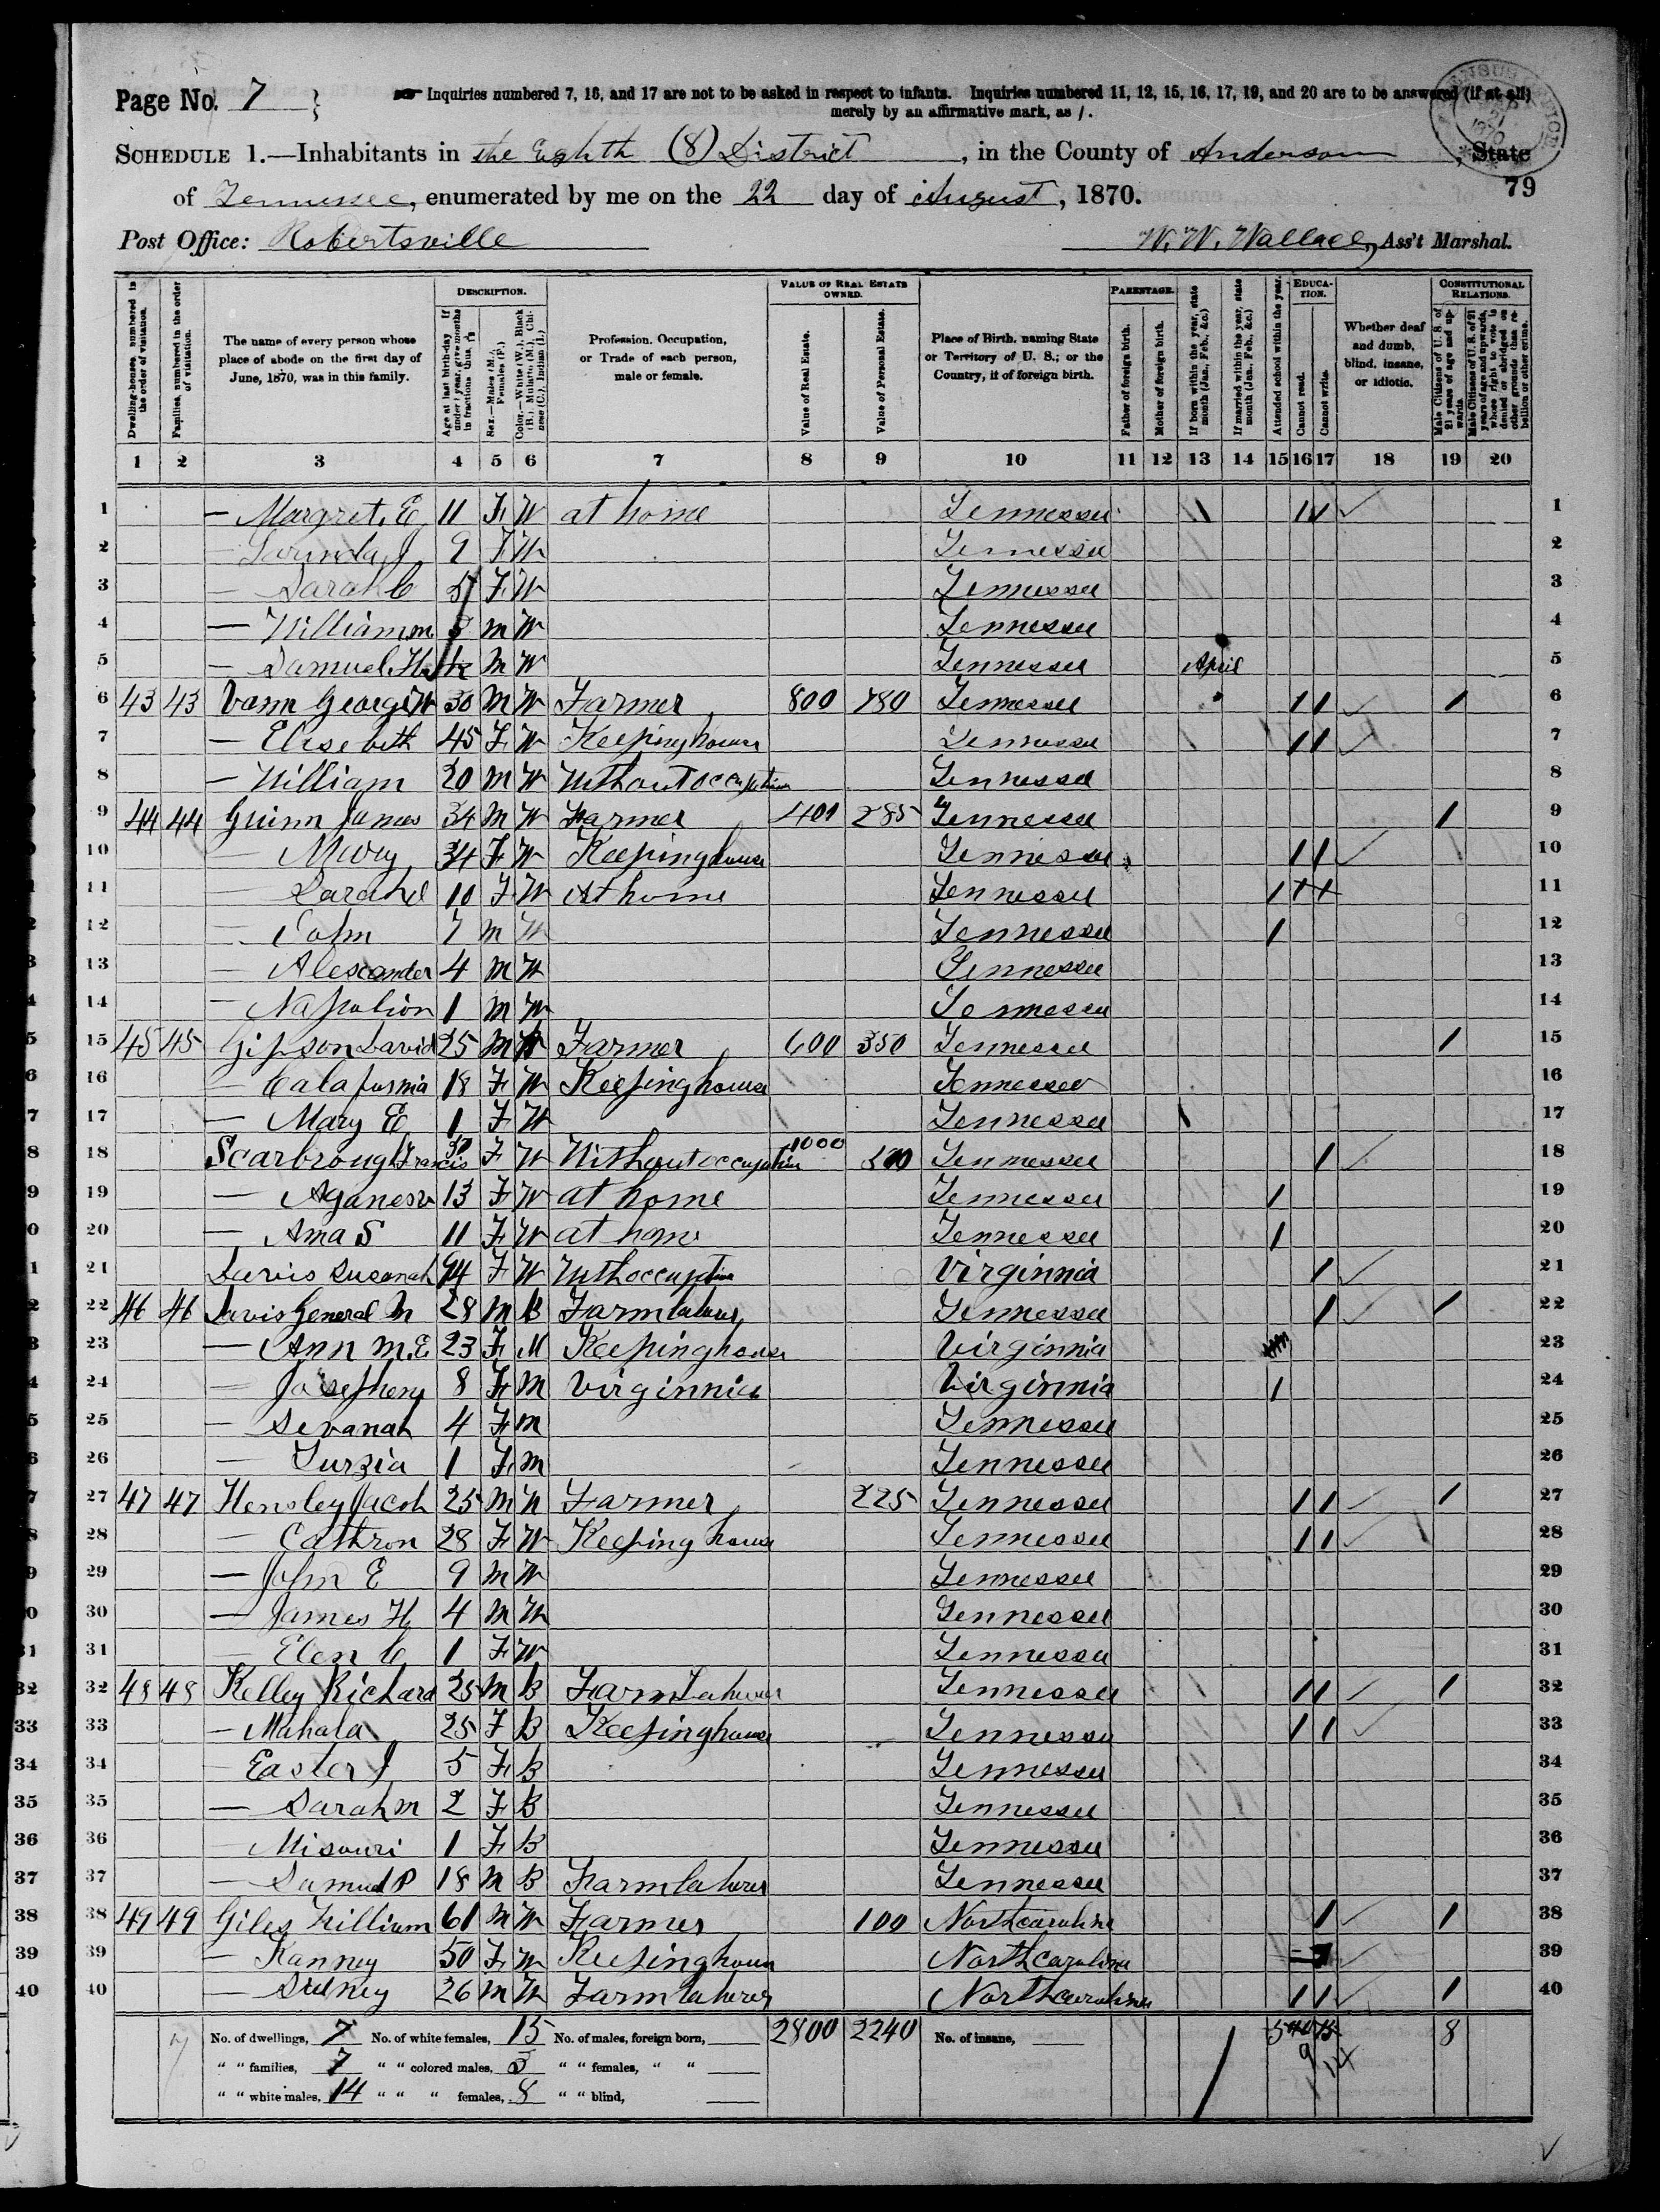 Page No. 7
Inquiries numbered 7, 16, and 17 are not to be asked in respect to infants. Inquiries numbered 11, 12, 15, 16, 17, 19, and 20 are to be answered (if at all)
merely by an affirmative mark, as /.
SCHEDULE 1.—Inhabitants in the Eighth (8) District, in the County of Anderson, State
of Tennessee, enumerated by me on the 22 day of August, 1870.
79
Post Office: Robertsville W. W. Wallace, Ass't Marshal.
Dwelling-houses, numbered in the order of visitation.
Families, numbered in the order of visitation.
The name of every person whose place of abode on the first day of June, 1870, was in this family.
DESCRIPTION.
Age at last birth-day. If under 1 year, give months in fractions, thus,
Sex.—Males (M.), Females (F.)
Color.—White (W.), Black (B.), Mulatto (M.), Chinese (C.), Indian (I.)
Profession, Occupation, or Trade of each person, male or female.
VALUE OF REAL ESTATE OWNED.
Value of Real Estate.
Value of Personal Estate.
Place of Birth, naming State or Territory of U. S.; or the Country, if of foreign birth.
PARENTAGE.
Father of foreign birth.
Mother of foreign birth.
If born within the year, state month (Jan., Feb., &c.)
If married within the year, state month (Jan., Feb., &c.)
Attended school within the year.
EDUCATION.
Cannot read.
Cannot write.
Whether deaf and dumb, blind, insane, or idiotic.
CONSTITUTIONAL RELATIONS.
Male Citizens of U. S. of 21 years of age and upwards.
Male Citizens of U. S. of 21 years of age and upwards, whose right to vote is denied or abridged on other grounds than rebellion or other crime.
1 2 3 4 5 6 7 8 9 10 11 12 13 14 15 16 17 18 19 20
1 — Margret. E 11 F W at home Tennessee / / ✓ 1
2 9 F W Tennessee 2
3 — Sarah C 5 F W Tennessee 3
4 — William m M W Tennessee 4
5 — Samuel. H M W Tennessee April 5
6 43 43 Vann George W 30 M W Farmer 800 780 Tennessee / / ✓ / 6
7 — Elisebeth 45 F W Keeping house Tennessee / / ✓ 7
8 — William 20 M W Without occupation Tennessee 8
9 44 44 Guinn James 34 M W Farmer 400 285 Tennessee / 9
10 — Mary 34 F W Keeping house Tennessee / / ✓ 10
11 — 10 F W At home Tennessee / 11
12 — John 7 M W Tennessee / 12
13 — Alexander 4 M W Tennessee 13
14 — Napolion 1 M W Tennessee 14
15 45 45 Gipson David 25 M W Farmer 600 350 Tennessee / 15
16 — Calafornia 18 F W Keeping house Tennessee 16
17 — Mary E 1 F W Tennessee 17
18 Scarbrough Francis F W Without occupation 1000 Tennessee / ✓ 18
19 — 13 F W at home Tennessee / 19
20 — Ama S 11 F W at home Tennessee / 20
21 Davis Susanah 94 F W With occuption Virginnia / ✓ 21
22 46 46 Davis General M 28 M B Farm laborer Tennessee / ✓ / 22
23 — Ann M. E 23 F M Keeping house Virginnia 23
24 — Josepheny 8 F M Virginnia Virginnia / 24
25 — Sevanah 4 F M Tennessee 25
26 — Turzia 1 F M Tennessee 26
27 47 47 Hensley Jacob 25 M W Farmer 225 Tennessee / / ✓ / 27
28 — Cathron 28 F W Keeping house Tennessee / / ✓ 28
29 — John E 9 M W Tennessee 29
30 — James H 4 M W Tennessee 30
31 — Elen C 1 F W Tennessee 31
32 48 48 Kelley Richard 25 M B Farm Laborer Tennessee / / ✓ / 32
33 — Mahala 25 F B Keeping house Tennessee / / ✓ 33
34 — Easter J 5 F B Tennessee 34
35 — Sarah M 2 F B Tennessee 35
36 — Misouri 1 F B Tennessee 36
37 — Samuel P 18 M B Farm laborer Tennessee 37
38 49 49 Giles William 61 M W Farmer 100 North carolina / ✓ / 38
39 — Kanney 50 F W Keeping house North carolina ✓ 39
40 — Sidney 26 M W Farm laborer North carolina / / ✓ / 40
No. of dwellings, 7 No. of white females, 15 No. of males, foreign born, 2800 2240 No. of insane, 5 8
" " families, 7 " " colored males, 3 " " females, " " 9 14
" " white males, 14 " " " females, 8 " " blind,